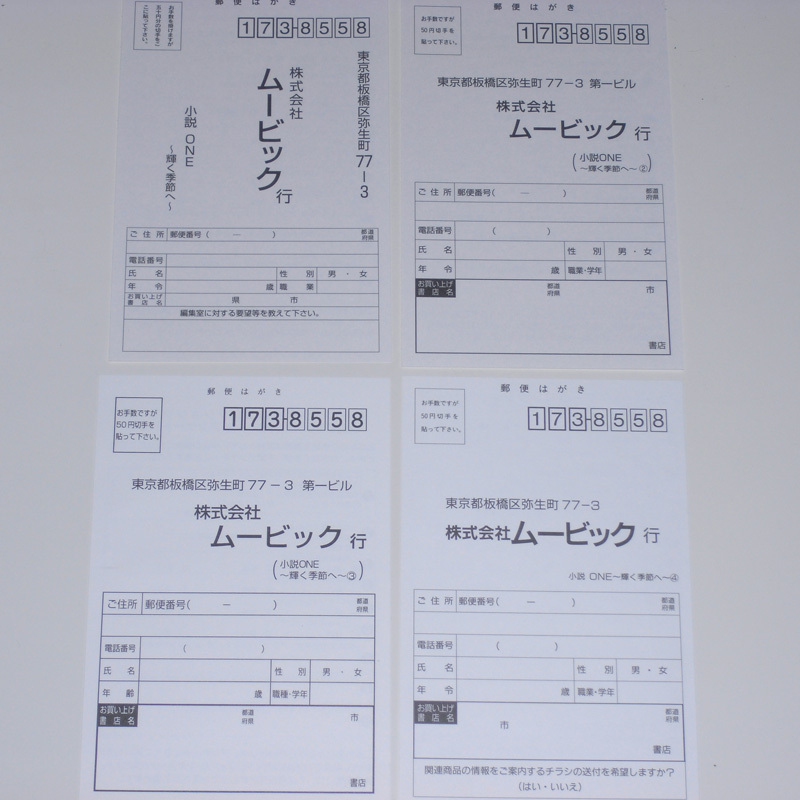 郵便はがき
お手数を掛けますが
五十円分の切手をご
こに貼って下さい。
173-8558
東京都板橋区弥生町77-3
株式会社
ムービック 行
小説 ONE
～輝く季節へ～
ご住所 郵便番号( － ) 都道府県
電話番号
氏名 性別 男・女
年令 歳 職業
お買い上げ書店名 県 市
編集室に対する要望等を教えて下さい。
郵便はがき
お手数ですが
50円切手を
貼って下さい。
173-8558
東京都板橋区弥生町77-3 第一ビル
株式会社
ムービック 行
(小説ONE
～輝く季節へ～②)
ご住所 郵便番号( － ) 都道府県
電話番号 ( )
氏名 性別 男・女
年令 歳 職業・学年
お買い上げ書店名 都道府県 市
書店
郵便はがき
お手数ですが
50円切手を
貼って下さい。
173-8558
東京都板橋区弥生町77-3 第一ビル
株式会社
ムービック 行
(小説ONE
～輝く季節へ～③)
ご住所 郵便番号( － ) 都道府県
電話番号 ( )
氏名 性別 男・女
年齢 歳 職種・学年
お買い上げ書店名 都道府県 市
書店
郵便はがき
お手数ですが
50円切手を
貼って下さい。
173-8558
東京都板橋区弥生町77-3
株式会社ムービック 行
小説 ONE～輝く季節へ～④
ご住所 郵便番号( － ) 都道府県
電話番号 ( )
氏名 性別 男・女
年令 歳 職業・学年
お買い上げ書店名 市 都道府県
書店
関連商品の情報をご案内するチラシの送付を希望しますか?
(はい・いいえ)